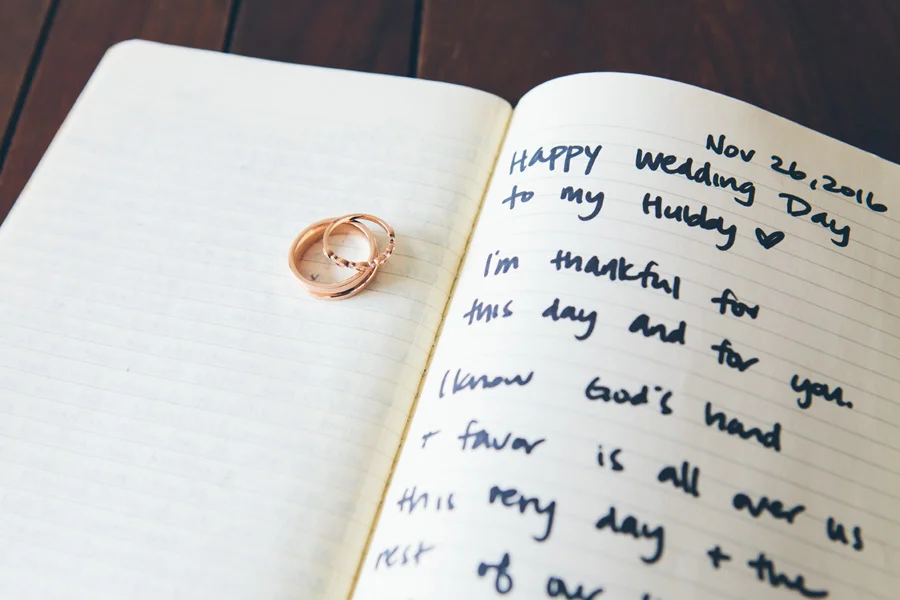 Nov 26, 2016
Happy Wedding Day
to my Hubby ♥
I'm thankful for
this day and for you.
I know God's hand
+ favor is all over us
this very day + the
rest of our